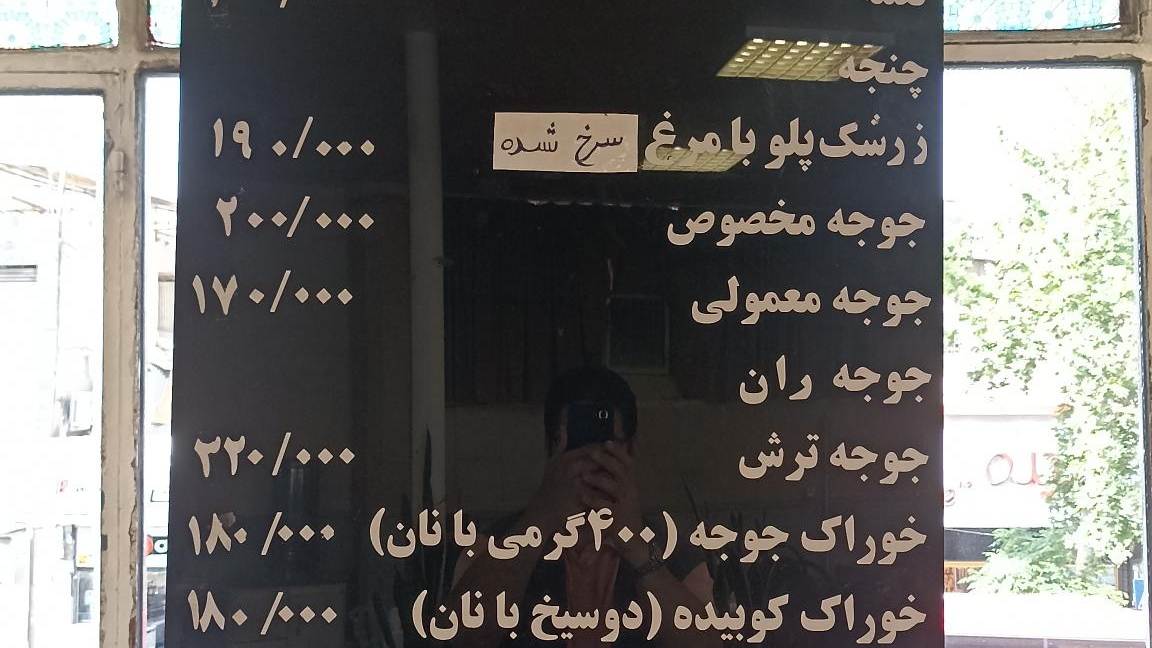 چنجه
زرشک‌پلو با مرغ سرخ شده ۱۹۰/۰۰۰
جوجه مخصوص ۲۰۰/۰۰۰
جوجه معمولی ۱۷۰/۰۰۰
جوجه ران
جوجه ترش ۲۲۰/۰۰۰
خوراک جوجه (۴۰۰گرمی با نان) ۱۸۰/۰۰۰
خوراک کوبیده (دوسیخ با نان) ۱۸۰/۰۰۰